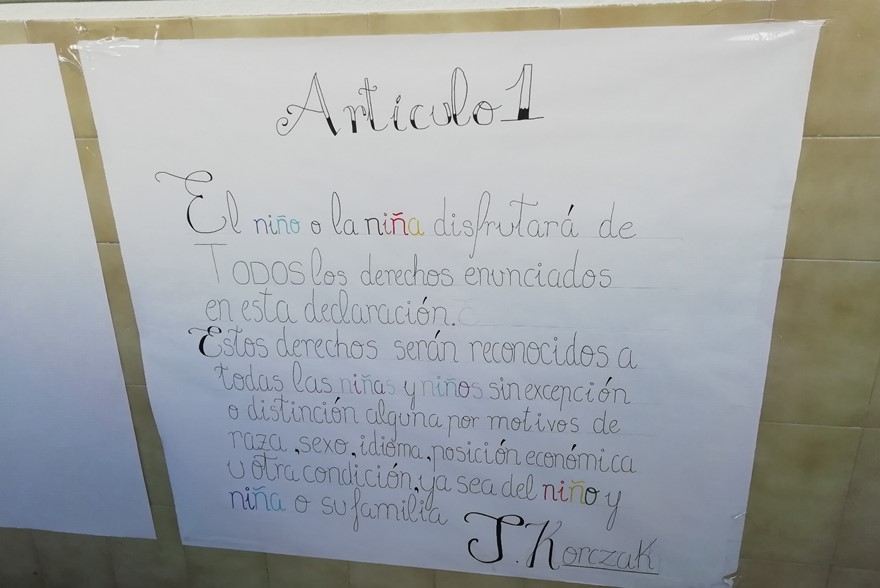 Articulo 1
El niño o la niña disfrutará de
TODOS los derechos enunciados
en esta declaración.
Estos derechos serán reconocidos a
todas las niñas y niños sin excepción
o distinción alguna por motivos de
raza, sexo, idioma, posición económica
u otra condición, ya sea del niño y
niña o su familia
J. Korczak